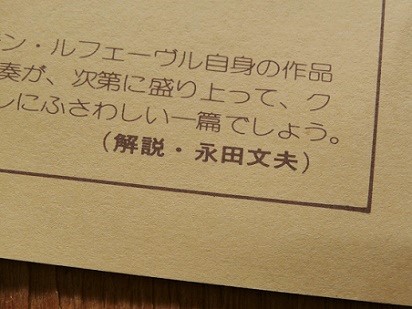 ン・ルフェーヴル自身の作品
奏が、次第に盛り上って、ク
しにふさわしい一篇でしょう。
(解説・永田文夫)